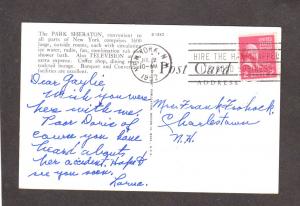 The PARK SHERATON, convenient to
all parts of New York, comprises 1600
large, outside rooms, each with circulating
ice water, radio, fan, combination tub
and shower. Also TELEVISION at slight
extra charge. Coffee shop, dining room
and bar. Banquet and Convention
facilities are excellent.
NEW YORK, N.Y.
10-AM
HIRE THE HA
Post Card
ADDRESS
Dear Gaylie
Wish you were
here with me.
Poor Doris of
course you have
heard about
her accident. Hope to
see you soon.
Mrs. Frank
Charlestown
N.H.